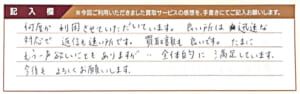 記入欄 ※今回ご利用いただきました買取サービスの感想を、手書きにてご記入お願いします。
何度か利用させていただいています。良い所は迅速な
対応で返信も速い所です。買取額も良いです。たまに
もう一声ほしいこともありますが‥全体的に満足しています。
今後もよろしくお願いします。